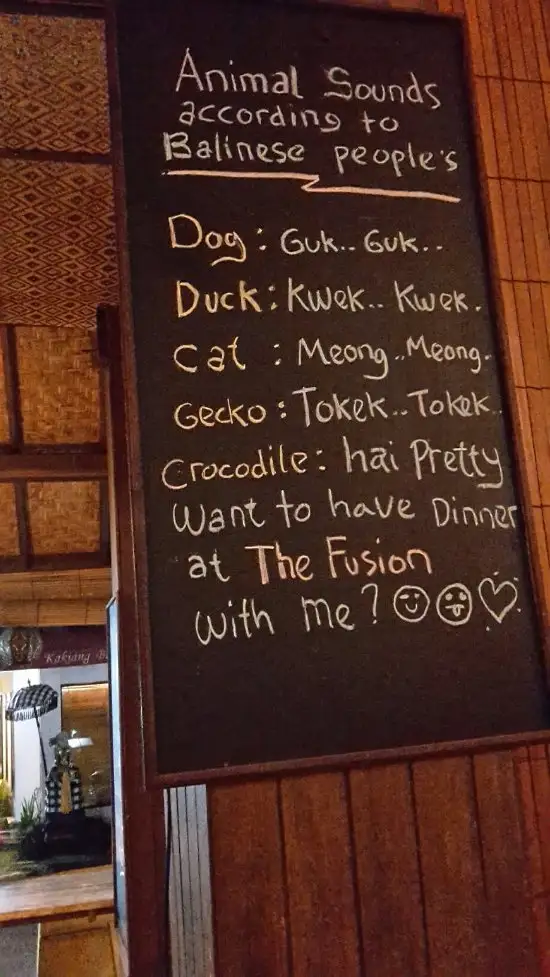 Animal Sounds
according to
Balinese people's
Dog : Guk.. Guk..
Duck : Kwek.. Kwek.
Cat : Meong..Meong.
Gecko : Tokek..Tokek..
Crocodile : hai Pretty
Want to have Dinner
at The Fusion
with me?
Kakiang